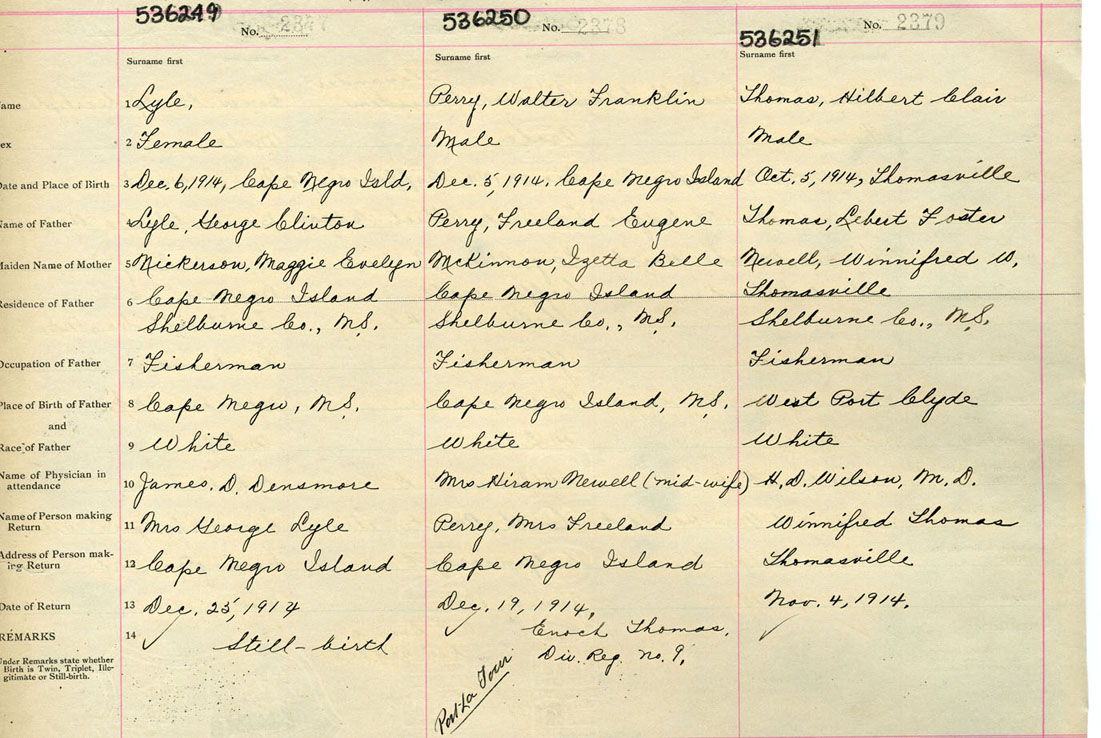 536249 No. 2377
536250 No. 2378
536251 No. 2379
Surname first Surname first Surname first
ame 1 Lyle, Perry, Walter Franklin Thomas, Hilbert Clair
ex 2 Female Male Male
Date and Place of Birth 3 Dec. 6, 1914, Cape Negro Isld. Dec. 5, 1914. Cape Negro Island Oct. 5, 1914, Thomasville
Name of Father 4 Lyle, George Clinton Perry, Freeland Eugene Thomas, Lebert Foster
Maiden Name of Mother 5 Nickerson, Maggie Evelyn McKinnon, Izetta Belle Newell, Winnifred W.
Residence of Father 6 Cape Negro Island Cape Negro Island Thomasville
Shelburne Co., N.S. Shelburne Co., N.S. Shelburne Co., N.S.
Occupation of Father 7 Fisherman Fisherman Fisherman
Place of Birth of Father 8 Cape Negro, N.S. Cape Negro Island, N.S. West Port Clyde
and
Race of Father 9 White White White
Name of Physician in
attendance 10 James. D. Densmore Mrs Hiram Newell (mid-wife) H. D. Wilson, M. D.
Name of Person making
Return 11 Mrs George Lyle Perry, Mrs Freeland Winnifred Thomas
Address of Person mak-
ing Return 12 Cape Negro Island Cape Negro Island Thomasville
Date of Return 13 Dec. 25, 1914 Dec. 19, 1914, Nov. 4, 1914.
REMARKS 14 Still-birth Enoch Thomas,
Div. Reg. No. 9,
Under Remarks state whether
Birth is Twin, Triplet, Ille-
gitimate or Still-birth.
Port La Tour